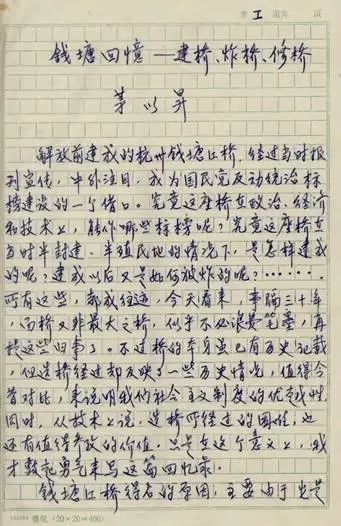 第 1 页共 页
钱塘回憶——建桥、炸桥、修桥
茅以昇
解放前建成的杭州钱塘江桥，经过当时报
刊宣传，中外注目，成为国民党反动统治标
榜建设的一个借口。究竟这座桥在政治、经济
和技术上，能作哪些标榜呢？究竟这座桥在
当时半封建、半殖民地的情况下，是怎样建成
的呢？建成以后又是如何被炸的呢？……
所有这些，都成往迹，今天看来，事隔三十年，
而桥又非最大之桥，似乎不必浪费笔墨，再
提这些旧事了。不过桥的本身虽已有历史记载，
但造桥经过却反映了一些历史情况，值得今
昔对比，来说明我们社会主义制度的优越性。
同时，从技术上说，造桥所经过的困难，也
还有值得参考的价值。只是在这个意义上，我
才鼓起勇气来写这篇回忆录。
钱塘江桥得名的原因，主要由于它是
(20×20=400)